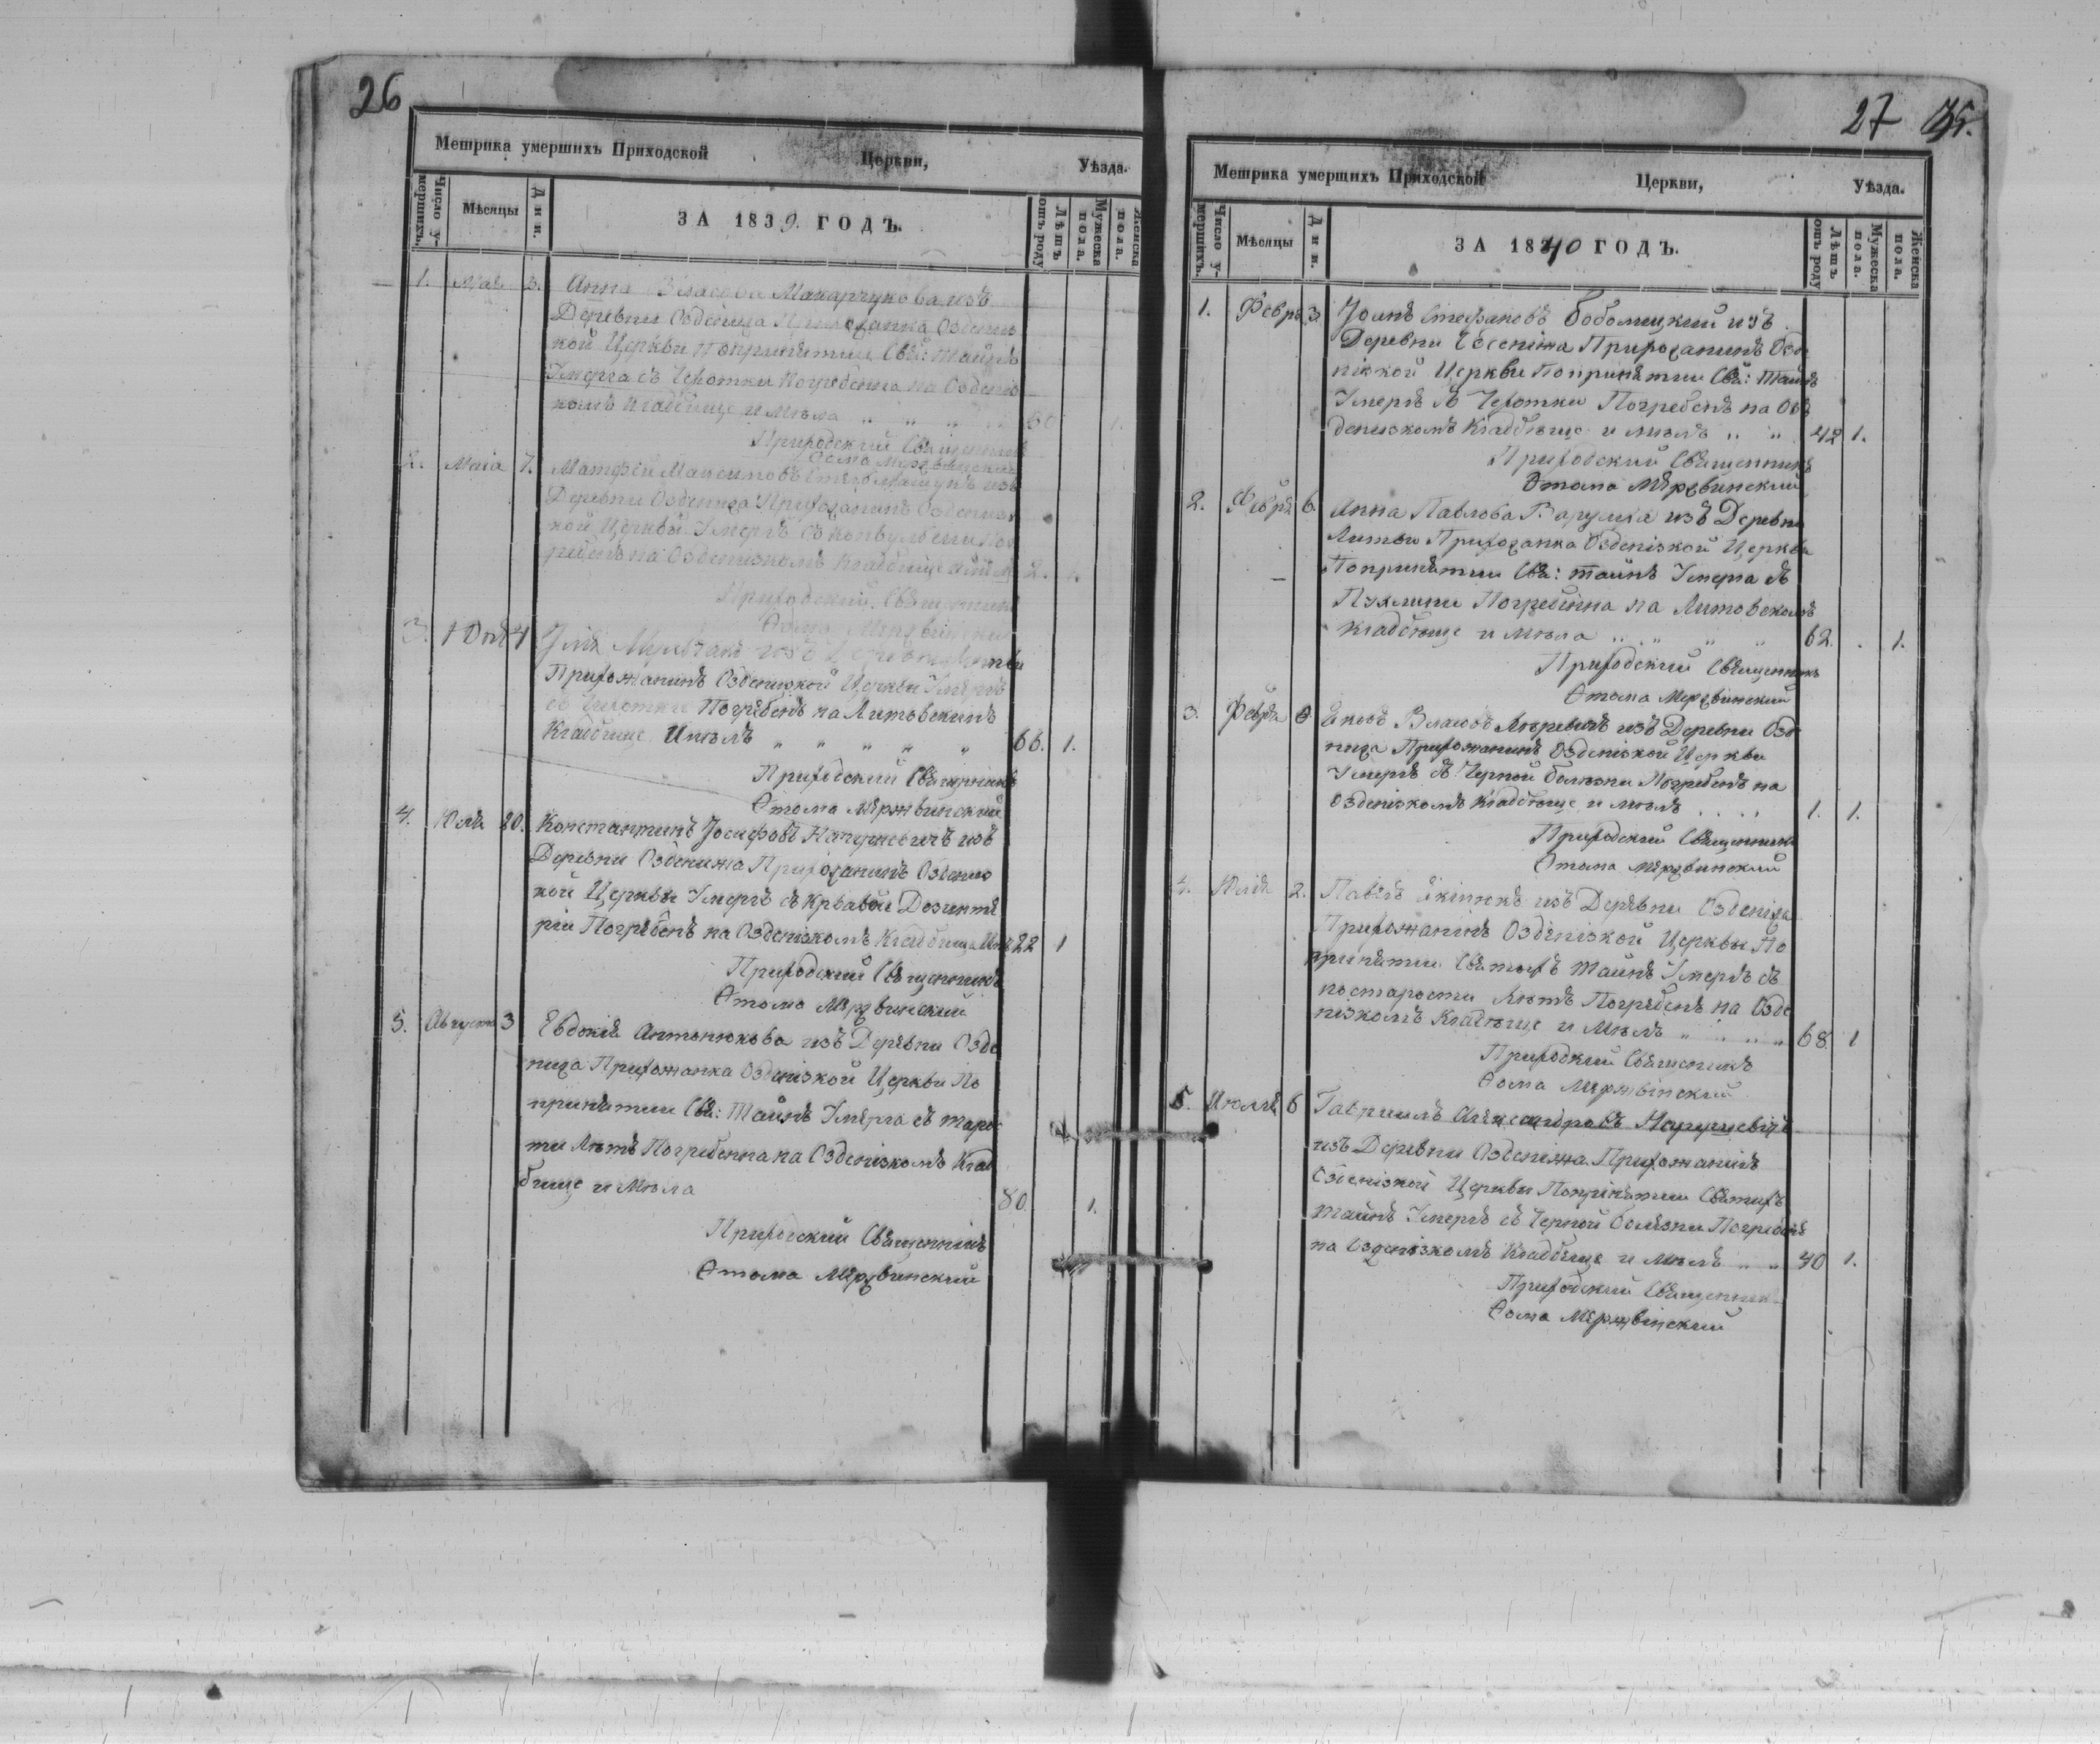 26
Метрика умершихъ Приходской Церкви, Уѣзда.
Число умершихъ. Мѣсяцы Дни. ЗА 1839. ГОДЪ. Лѣтъ отъ роду Мужеска пола. Женска пола.
1. Мая 3. Анна Власова Макарчукова изъ
Деревни Озденица Прихожанка Оздениз
кой Церкви Попринятии Свя: Тайнъ
Умерла съ Чехотки Погребенна на Оздениз
комъ Кладбище и мѣла 60 1.
Приходский Священникъ
Фома Мержвинский
2. Маіа 7. Матфѣй Максимовъ изъ
Деревни Озденица Прихожанинъ Оздениз
кой Церквы Умеръ съ конвульсии Пог
ребенъ на Озденизкомъ Кладбище 2. 1.
Приходский Священникъ
Фома Мержвинский
3. 4 изъ Деревни Литвы
Прихожанинъ Оздениzкой Церкви Умеръ
съ Чехотки Погребенъ на Литовскимъ
Кладбище Имѣлъ „ „ „ „ „ 66. 1.
Приходский Священникъ
Фтома Мержвинский
4. Юля 20. Константинъ Іосифовъ изъ
Деревни Озденижа Прихожанинъ Оздениз
кой Церквы Умеръ съ Крвавой Дезинте
ріи Погребенъ на Озденизкомъ Кладбище 22 1
Приходский Священникъ
Фтома Мержвинский
5. Августа 3 Евдокія Антонюкова изъ Деревни Озде
ница Прихожанка Озденизкой Церкви По
принятии Свя: Тайнъ Умерла съ тарос
ти лѣтъ Погребенна на Озденизкомъ Клад
бище и Мѣла 80. 1.
Приходский Священникъ
Фтома Мержвинский
27 35.
Метрика умершихъ Приходской Церкви, Уѣзда.
Число умершихъ. Мѣсяцы Дни. ЗА 1840 ГОДЪ. Лѣтъ отъ роду Мужеска пола. Женска пола.
1. Февра 3 Іоанъ Стефановъ Боболицкий изъ
Деревни Прихожанинъ Озде
нізкой Церкви Попринятии Свя: Тайнъ
Умеръ съ Чехотки Погребенъ на Оз
денизкомъ Кладбѣще и мѣлъ „ „ 42 1.
Приходский Священникъ
Фтома Мержвинский
2. Февра 6. Анна Павлова из Деревни
Литвы Прихожанка Озденізкой Церквы
Попринятии Свя: тайнъ Умерла съ
Пухлини Погребенна на Литовскомъ
Кладбѣще и мѣла 62. . 1.
Приходский Священникъ
Фтома Мержвинский
3. Февра Яковъ Власовъ изъ Деревни Озде
ница Прихожанинъ Озденізкой Церквы
Умеръ съ Черной болѣзни Погребенъ на
Озденізкомъ Кладбѣще и мѣлъ . . . . 1. 1.
Приходский Священникъ
Фтома Мержвинский
4. Юлія 2. Павелъ изъ Деревни Озденіца
Прихожанінъ Озденізкой Церквы По
принятии Святыхъ Тайнъ Умеръ съ
постарости Лѣтъ Погребенъ на Озде
нізкомъ Кладбѣще и Мѣлъ „ „ „ „ 68. 1
Приходкий Священикъ
Фома Мержвінский
5. Июлія 6 Гавриилъ Александровъ
изъ Деревни Озденижа Прихожанінъ
Озденізкой Церквы Попрінятии Святыхъ
Тайнъ Умеръ съ Черной болѣзни Погребенъ
на Озденізкомъ Кладбѣще и Мѣлъ „ „ 40 1.
Приходский Священник
Фома Мержвінский